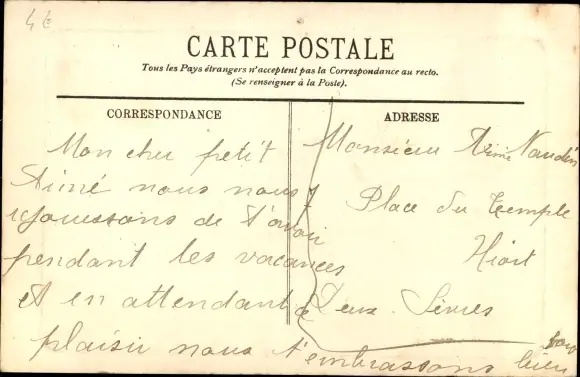 4€
CARTE POSTALE
Tous les Pays étrangers n'acceptent pas la Correspondance au recto.
(Se renseigner à la Poste).
CORRESPONDANCE
Mon cher petit
Aimé nous nous
rejouissons de t'avoir
pendant les vacances
et en attendant ce
plaisir nous t'embrassons bien
ADRESSE
Monsieur Aimé Naudin
Place du Temple
Niort
Deux-Sèvres